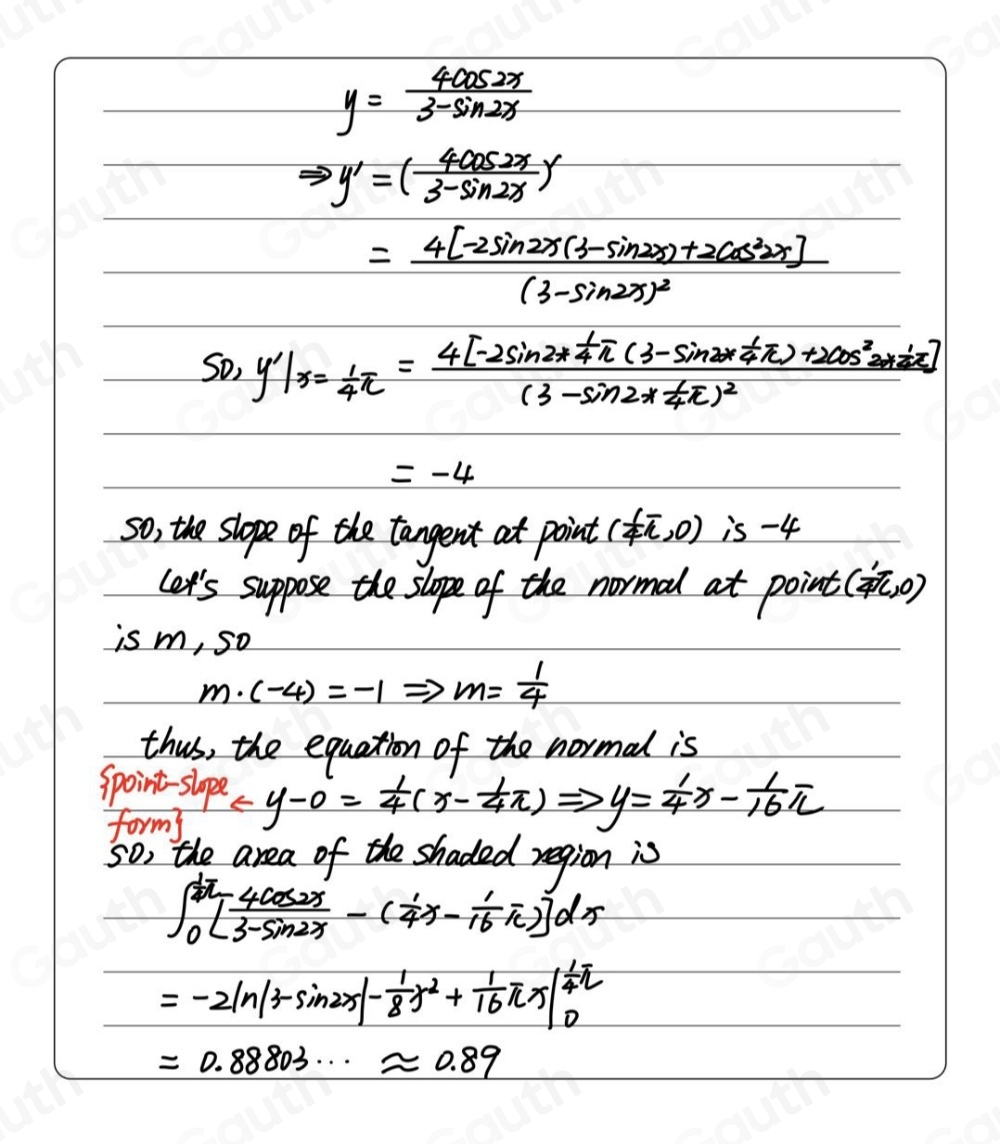 y = 4cos2x / 3-sin2x
⇒ y' = (4cos2x / 3-sin2x)'
= 4[-2sin2x(3-sin2x)+2cos²2x] / (3-sin2x)²
So, y'|x=1/4π = 4[-2sin2*1/4π(3-sin2*1/4π)+2cos²2*1/4π] / (3-sin2*1/4π)²
= -4
so, the slope of the tangent at point (1/4π,0) is -4
Let's suppose the slope of the normal at point (1/4π,0)
is m, so
m·(-4) = -1 ⇒ m = 1/4
thus, the equation of the normal is
{point-slope form} ← y-0 = 1/4(x-1/4π) ⇒ y = 1/4x - 1/16π
so, the area of the shaded region is
∫₀^{1/4π} [4cos2x / 3-sin2x - (1/4x - 1/16π)]dx
= -2ln|3-sin2x| - 1/8x² + 1/16πx |₀^{1/4π}
= 0.88803··· ≈ 0.89
Gauth